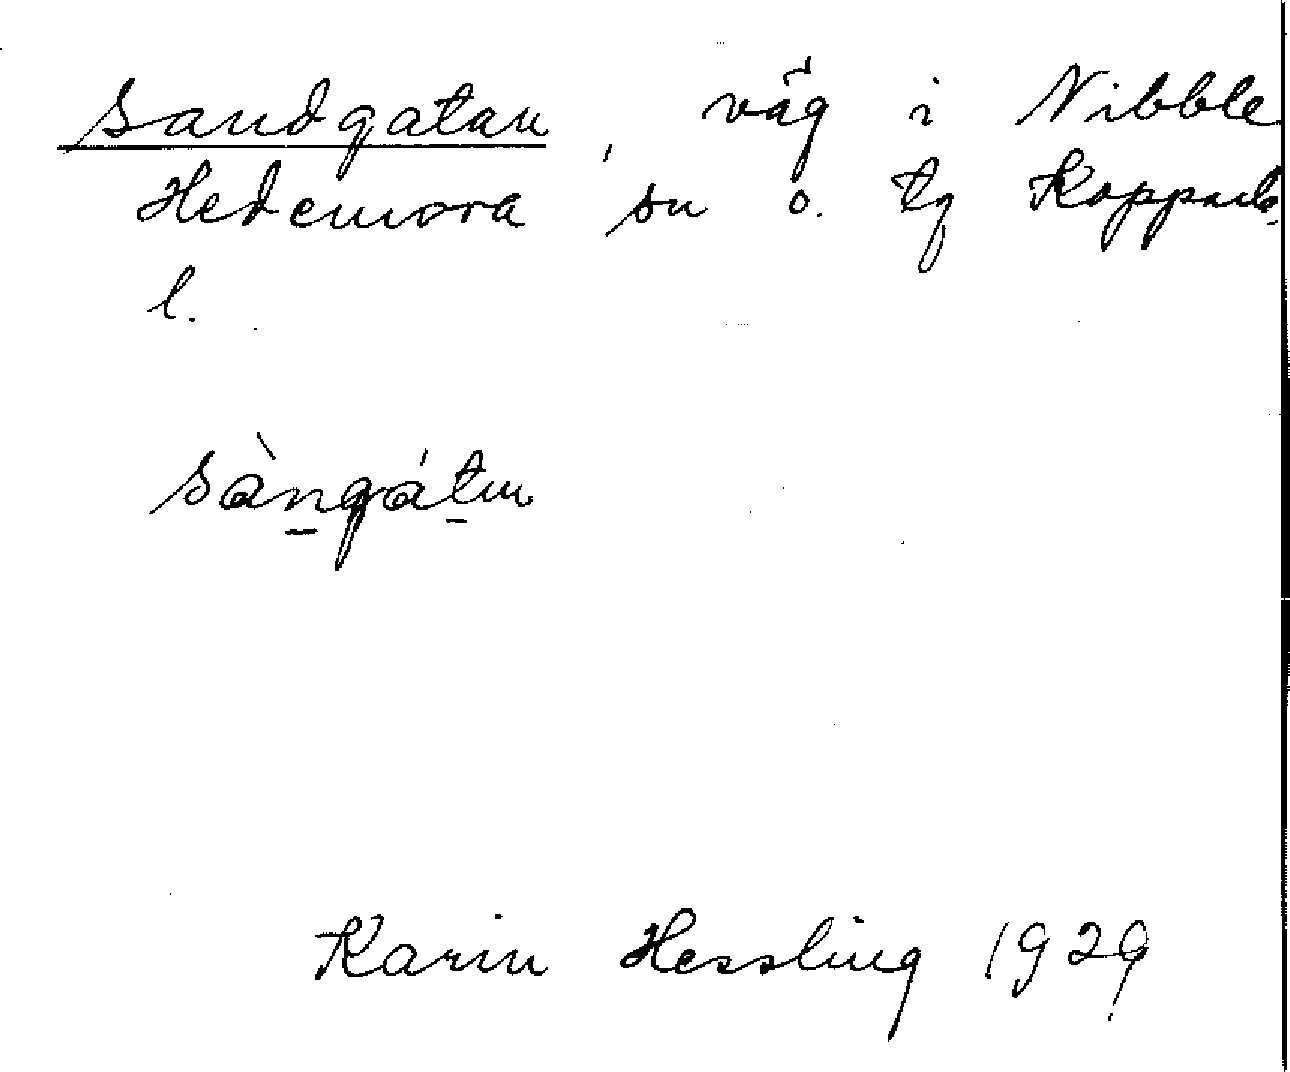 Sandgatan, väg i Nibble
Hedemora sn o. tg Kopparb.
l.
sàngátn
Karin Hessling 1929